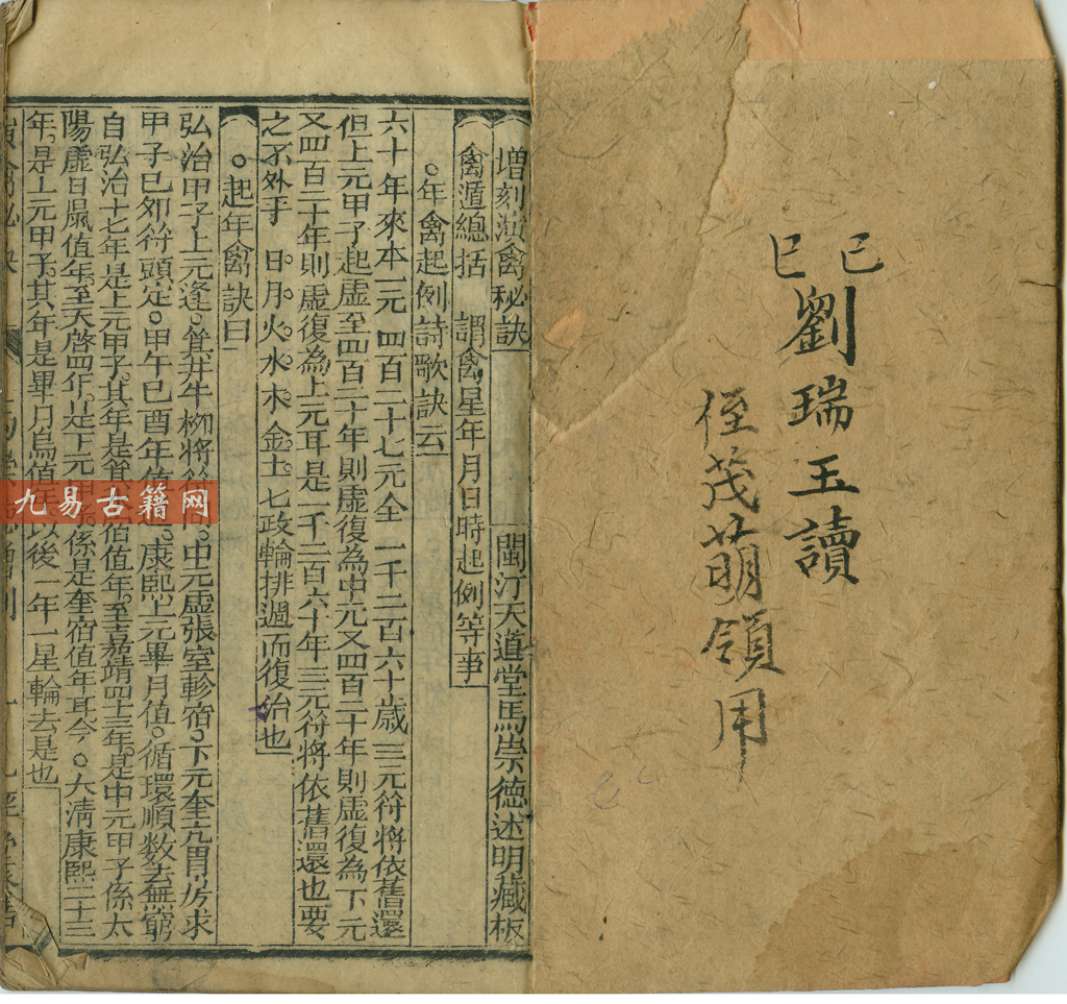 己巳
劉瑞玉讀
侄茂萌領用
增刻演禽秘訣 閩汀天道堂馬崇德述明藏板
禽遁總括 謂禽星年月日時起例等事
年禽起例詩歌訣云
六十年來本一元 四百二十七元全 一千二百六十歲 三元符將依舊還
但上元甲子起虛至四百二十年則虛復為中元又四百二十年則虛復為下元
又四百二十年則虛復為上元耳是一千二百六十年三元符將依舊還也要
之不外乎 日月火水木金土七政輪排週而復治也
起年禽訣曰
弘治甲子上元逢箕井牛柳將符同中元虛張室軫宿下元奎亢胃房求
甲子已夘符頭定甲午已酉年值康熙上元畢月值循環順数去無窮
自弘治十七年是上元甲子其年是箕宿值年至嘉靖四十三年是中元甲子係太
陽虛日鼠值年至天啓四年是下元甲子係是奎宿值年耳今大清康熙二十三
年是上元甲子其年是畢月烏值年以後一年一星輪去是也
九易古籍网